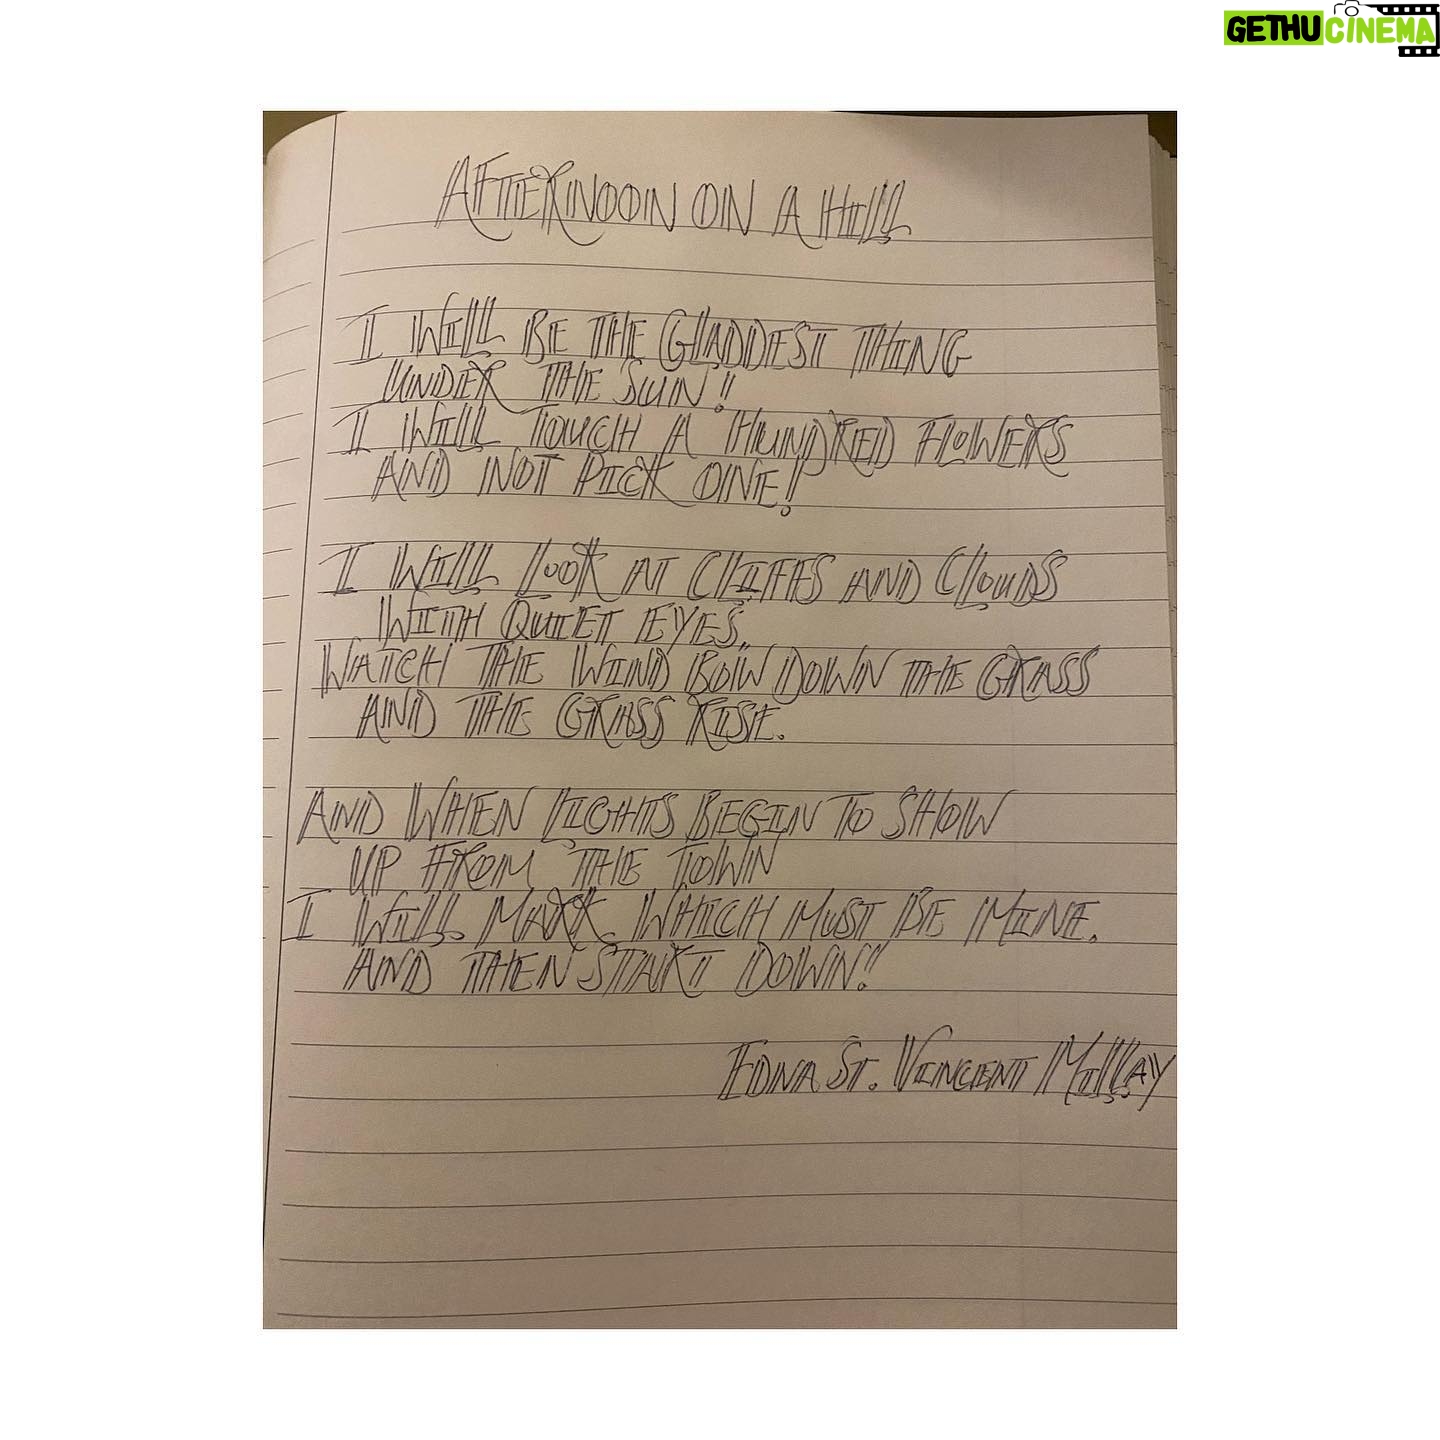 GETHUCINEMA
AFTERNOON ON A HILL
I WILL BE THE GLADDEST THING
UNDER THE SUN!
I WILL TOUCH A HUNDRED FLOWERS
AND NOT PICK ONE!
I WILL LOOK AT CLIFFS AND CLOUDS
WITH QUIET EYES,
WATCH THE WIND BOW DOWN THE GRASS
AND THE GRASS RISE.
AND WHEN LIGHTS BEGIN TO SHOW
UP FROM THE TOWN
I WILL MARK WHICH MUST BE MINE.
AND THEN START DOWN!
EDNA ST. VINCENT MILLAY